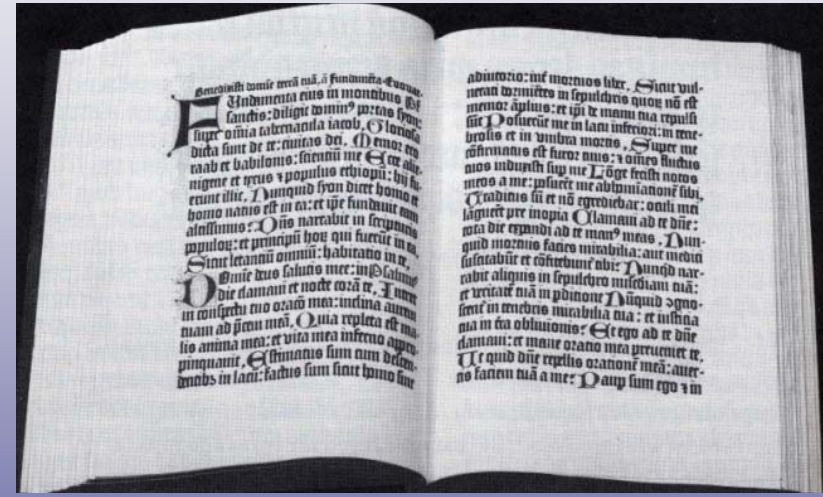 Benedixisti domīe terrā tuā, ā Fundamēta Euouae.
FUndamenta eius in montibus Ps
sanctis: diligit domin⁹ portas syon:
super omnia tabernacula iacob. Gloriosa
dicta sunt de te: ciuitas dei. Memor ero
raab et babilonis: scientiū me Ecce alie-
nigene et tyrus ⁊ populus ethiopū: hij fu-
erunt illic. Nunquid syon dicet homo et
homo natus est in ea: et ip̄e fundauit eam
altissimus: Dn̄s narrabit in scripturis
populoꝝ: et principū hoꝝ qui fuerūt in ea.
Sicut letanciū omniū: habitatio in te.
DOmine deus salutis mee: in Psalmus
die clamaui et nocte corā te. Intret
in conspectu tuo oracō mea: inclina aurem
tuam ad p̄cem meā. Quia repleta est ma-
lis anima mea: et vita mea inferno appro-
pinquauit. Estimatus sum cum descen-
dentibꝫ in lacū: factus sum sicut homo sine
adiutorio: int̄ mortuos liber. Sicut vul-
nerati dormiētes in sepulchris quoꝝ nō est
memor āplius: et ip̄i de manu tua repulsi
sūt Posuerūt me in lacu inferiori: in tene-
brosis et in vmbra mortis. Super me
cōfirmatus est furor tuus: ⁊ om̄es fluctus
tuos induxisti sup me Lōge fecisti notos
meos a me: posuerūt me abhominationē sibi.
Traditus sū et nō egrediebar: oculi mei
lāguerūt pre inopia Clamaui ad te dn̄e:
tota die expandi ad te man⁹ meas. Nun-
quid mortuis facies mirabilia: aut medici
suscitabūt et cōfitebunt̄ tibi: Nunqd nar-
rabit aliquis in sepulchro misc̄diam tuā:
et veritatē tuā in pditione Nūquid ꝯgno-
scent̄ in tenebris mirabilia tua: et iusticia
tua in t̄ra obliuionis: Et ego ad te dn̄e
clamaui: et mane oratio mea preueniet te.
Ut quid dn̄e repellis orationē meā: auer-
tis faciem tuā a me: Paup sum ego ⁊ in